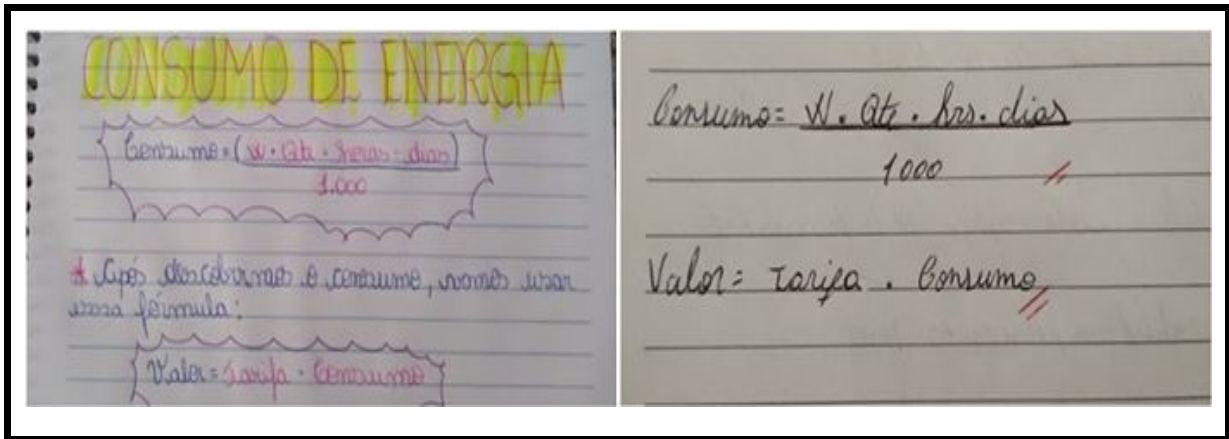 CONSUMO DE ENERGIA
Consumo = (W · Qte · horas · dias)
1.000
* Após descobrirmos o consumo, vamos usar
essa fórmula:
Valor = Tarifa · Consumo
Consumo = W. Qte. hrs. dias
1000
Valor = Tarifa . Consumo